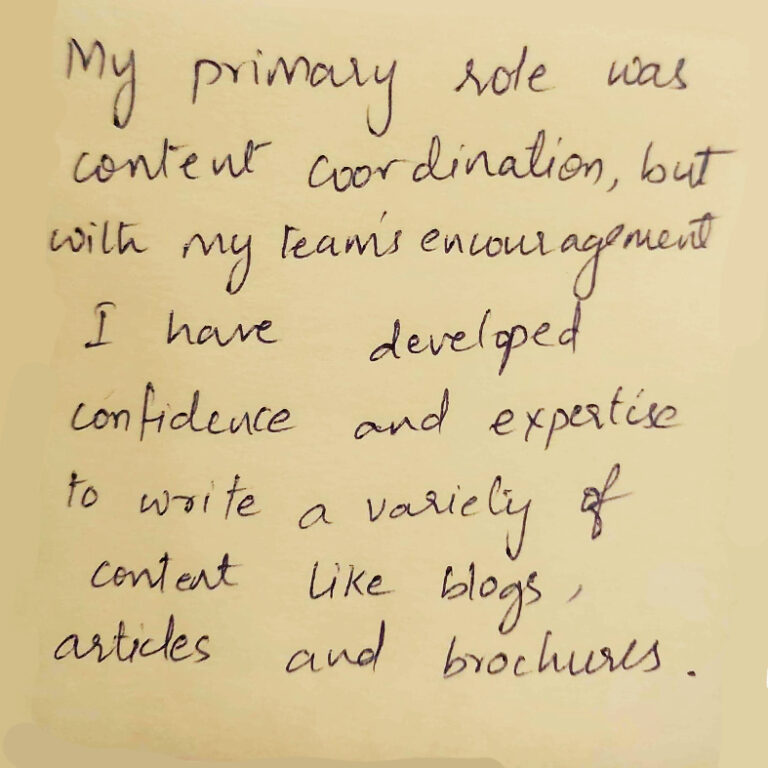 My primary role was
content coordination, but
with my team's encouragement
I have developed
confidence and expertise
to write a variety of
content like blogs,
articles and brochures.